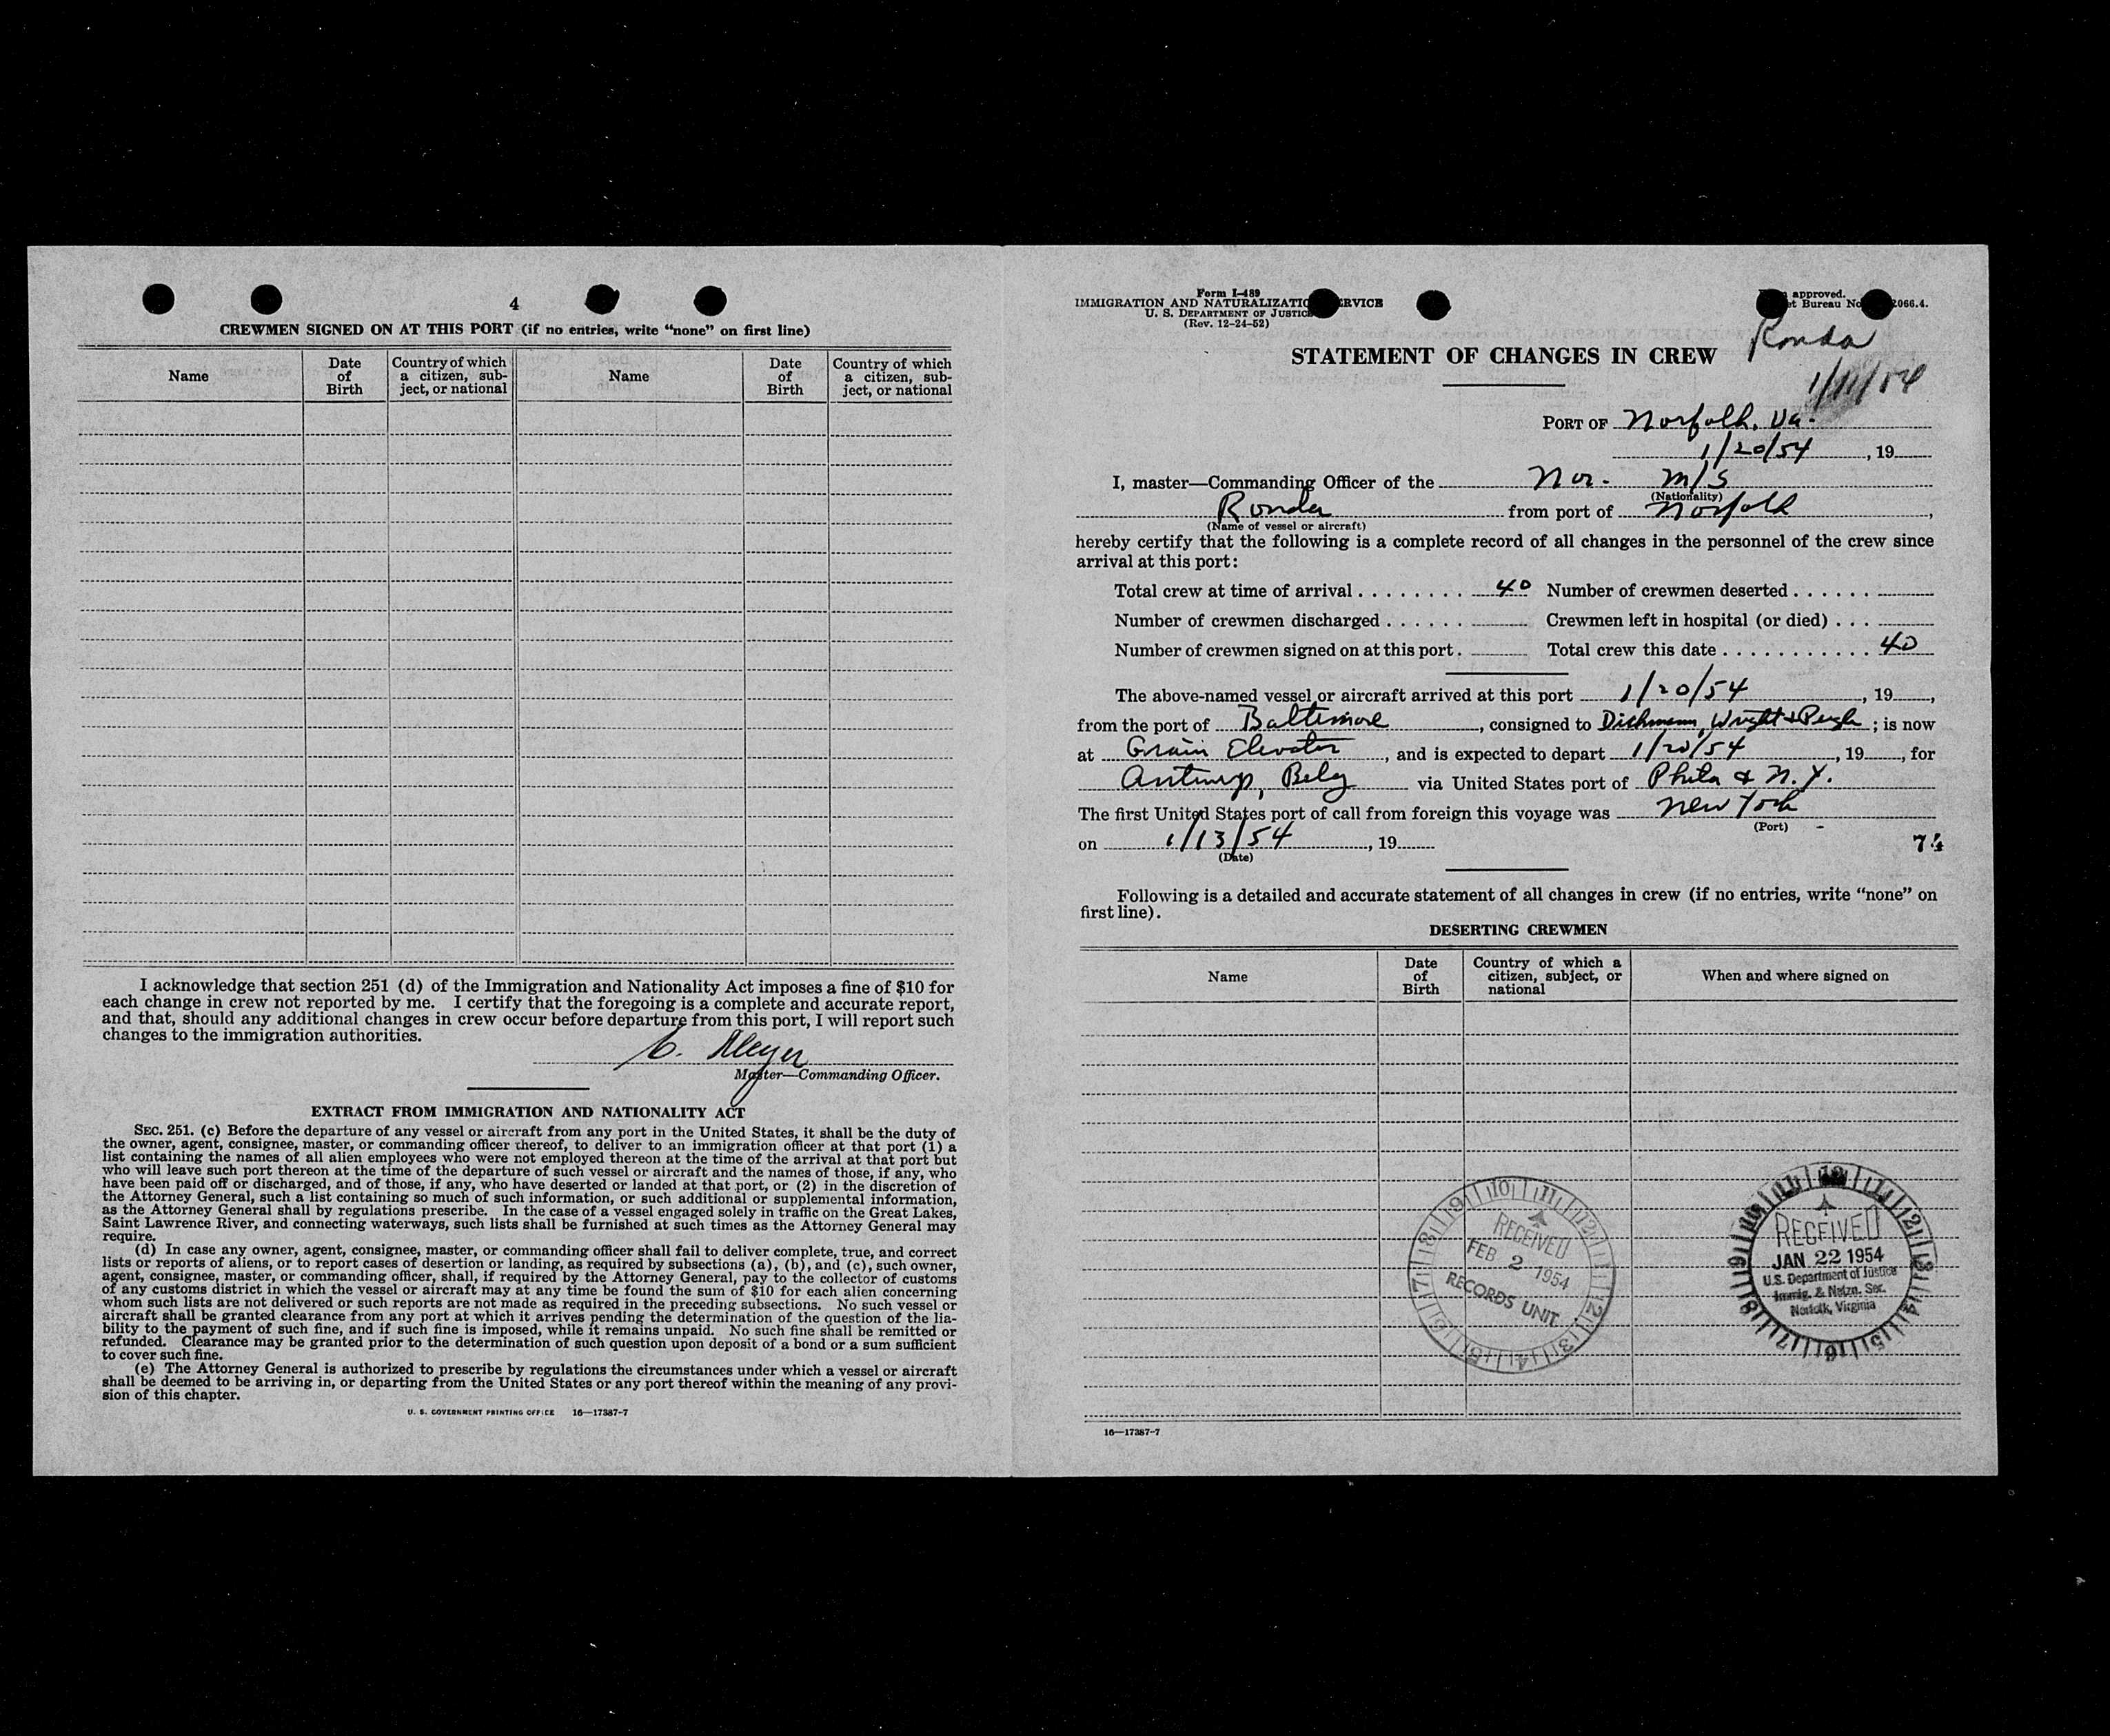 4
CREWMEN SIGNED ON AT THIS PORT (if no entries, write “none” on first line)
Name
Date of Birth
Country of which a citizen, subject, or national
Name
Date of Birth
Country of which a citizen, subject, or national
I acknowledge that section 251 (d) of the Immigration and Nationality Act imposes a fine of $10 for
each change in crew not reported by me. I certify that the foregoing is a complete and accurate report,
and that, should any additional changes in crew occur before departure from this port, I will report such
changes to the immigration authorities.
Meyer
Master—Commanding Officer.
EXTRACT FROM IMMIGRATION AND NATIONALITY ACT
SEC. 251. (c) Before the departure of any vessel or aircraft from any port in the United States, it shall be the duty of
the owner, agent, consignee, master, or commanding officer thereof, to deliver to an immigration officer at that port (1) a
list containing the names of all alien employees who were not employed thereon at the time of the arrival at that port but
who will leave such port thereon at the time of the departure of such vessel or aircraft and the names of those, if any, who
have been paid off or discharged, and of those, if any, who have deserted or landed at that port, or (2) in the discretion of
the Attorney General, such a list containing so much of such information, or such additional or supplemental information,
as the Attorney General shall by regulations prescribe. In the case of a vessel engaged solely in traffic on the Great Lakes,
Saint Lawrence River, and connecting waterways, such lists shall be furnished at such times as the Attorney General may
require.
(d) In case any owner, agent, consignee, master, or commanding officer shall fail to deliver complete, true, and correct
lists or reports of aliens, or to report cases of desertion or landing, as required by subsections (a), (b), and (c), such owner,
agent, consignee, master, or commanding officer, shall, if required by the Attorney General, pay to the collector of customs
of any customs district in which the vessel or aircraft may at any time be found the sum of $10 for each alien concerning
whom such lists are not delivered or such reports are not made as required in the preceding subsections. No such vessel or
aircraft shall be granted clearance from any port at which it arrives pending the determination of the question of the lia-
bility to the payment of such fine, and if such fine is imposed, while it remains unpaid. No such fine shall be remitted or
refunded. Clearance may be granted prior to the determination of such question upon deposit of a bond or a sum sufficient
to cover such fine.
(e) The Attorney General is authorized to prescribe by regulations the circumstances under which a vessel or aircraft
shall be deemed to be arriving in, or departing from the United States or any port thereof within the meaning of any provi-
sion of this chapter.
U. S. GOVERNMENT PRINTING OFFICE 16—17387-7
Form I-489
IMMIGRATION AND NATURALIZATIO RVICE
U. S. DEPARTMENT OF JUSTICE
(Rev. 12-24-52)
approved.
et Bureau No 2066.4.
Ronda
STATEMENT OF CHANGES IN CREW
1/11/54
PORT OF Norfolk, Va.
1/20/54, 19
I, master—Commanding Officer of the Nor. M/S
(Nationality)
Ronda from port of Norfolk,
(Name of vessel or aircraft)
hereby certify that the following is a complete record of all changes in the personnel of the crew since
arrival at this port:
Total crew at time of arrival . . . . . . . . 40 Number of crewmen deserted . . . . . .
Number of crewmen discharged . . . . . . Crewmen left in hospital (or died) . . .
Number of crewmen signed on at this port . Total crew this date . . . . . . . . . . . 40
The above-named vessel or aircraft arrived at this port 1/20/54, 19,
from the port of Baltimore, consigned to Dichmann, Wright & Pugh; is now
at Grain Elevator, and is expected to depart 1/20/54, 19, for
Antwerp, Belg via United States port of Phila & N.Y.
The first United States port of call from foreign this voyage was New York
(Port)
on 1/13/54, 19
(Date)
74
Following is a detailed and accurate statement of all changes in crew (if no entries, write “none” on
first line).
DESERTING CREWMEN
Name
Date of Birth
Country of which a citizen, subject, or national
When and where signed on
RECEIVED
FEB 2 1954
RECORDS UNIT
RECEIVED
JAN 22 1954
U.S. Department of Justice
Immig. & Natzn. Ser.
Norfolk, Virginia
16—17387-7